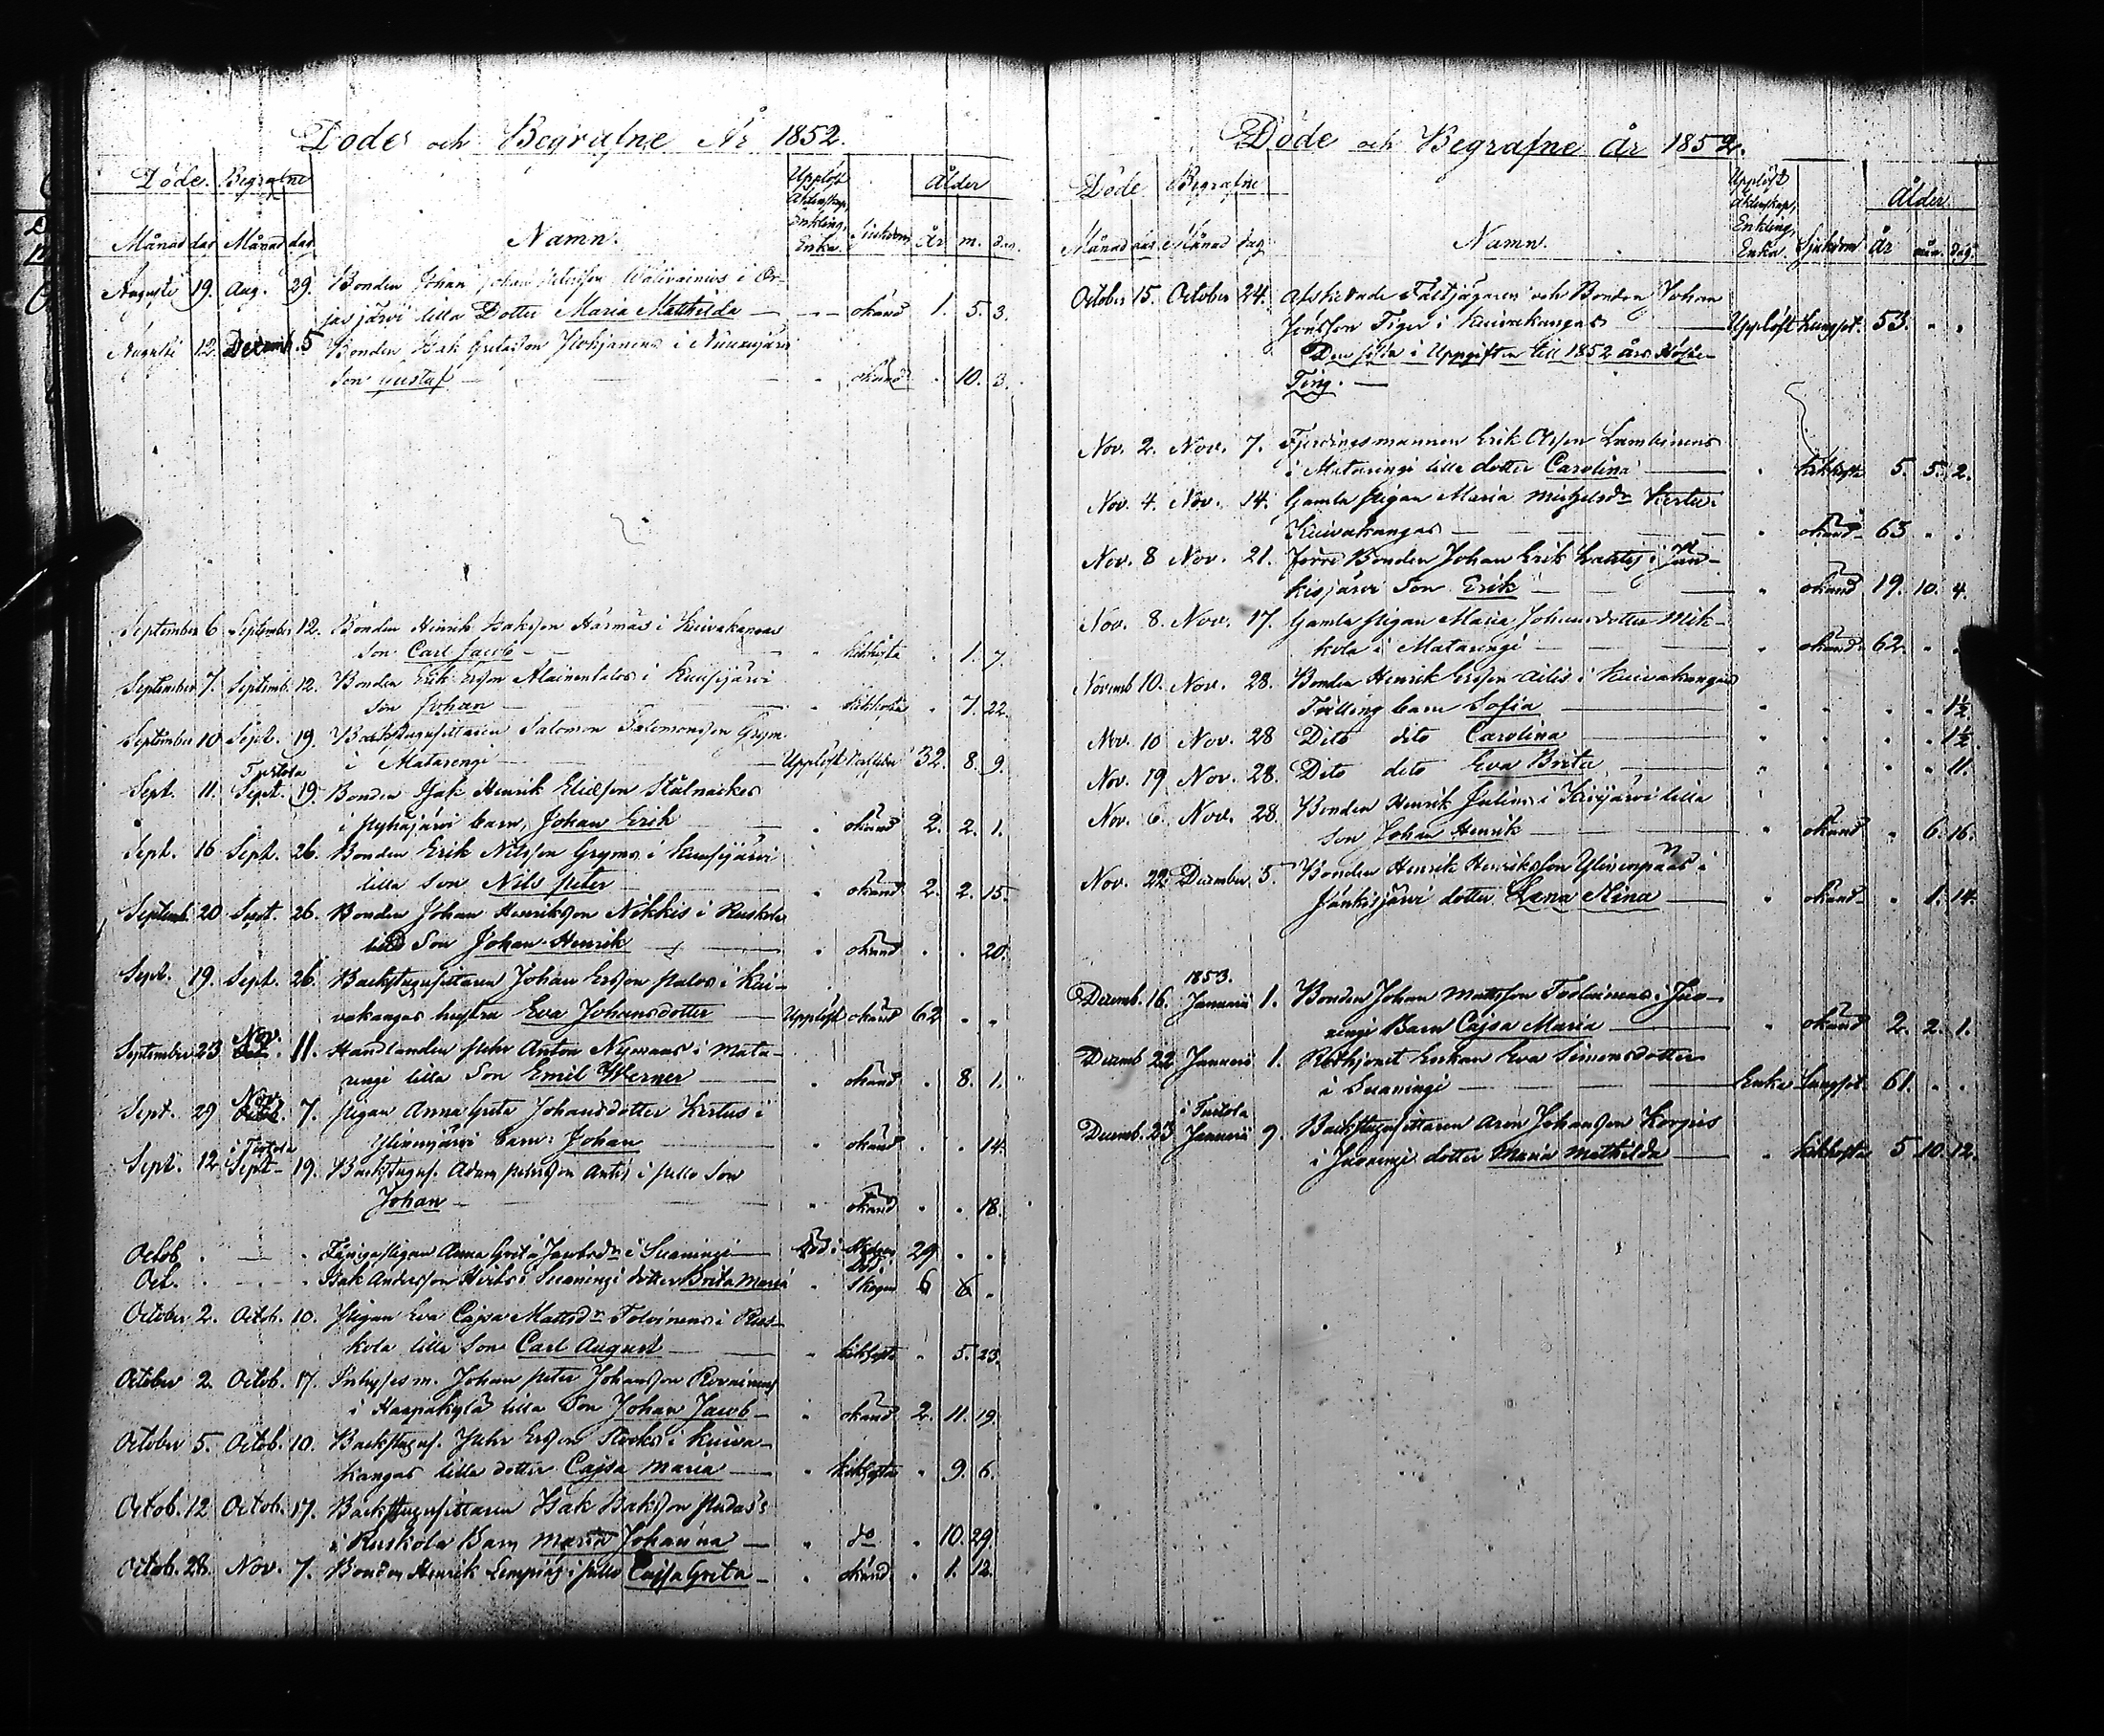 Döde och Begrafne År 1852.
Döde. Begrafne Upplöst Äktenskap, Enkling, Enka. Sjukdom Ålder
Månad dag Månad dag Namn. år m. dag.
Augusti 19. Aug. 29. Bonden Johan Johan Petersson i Or-
jasjärvi lilla Dotter Maria Mathilda okänd 1. 5. 3.
Augusti 12. Decemb. 5 Bonden Isak Gretasson i
Son Gustaf okänd 10. 3.
September 6 September 12. Bonden Henrik Isaksson Harmas i Kuivakangas
Son Carl Jacob kikhosta 1. 7.
September 7. Septemb. 12. Bonden Erik Ersson Alainentalos i Kuusijärvi
Son Johan kikhosta 7. 22.
September 10 Sept. 19. Backstugusittaren Salomon Salomonsson Grym
i Matarengi Upplöst 32. 8. 9.
Turtola
Sept. 11. Sept. 19. Bonden Isak Henrik Eliesson Stålnackes
i Pyhäjärvi barn, Johan Erik okänd 2. 2. 1.
Sept. 16 Sept. 26. Bonden Erik Nilsson Gryms i Kuusijärvi
lilla Son Nils Peter okänd 2. 2. 15.
Septemb. 20 Sept. 26. Bonden Johan Henriksson Nikkis i Ruskola
lilla Son Johan Henrik okänd 20.
Sept. 19. Sept. 26. Backstugusittaren Johan Ersson Palos i Kui-
vakangas hustru Eva Johansdotter Upplöst okänd 62
Nov.
September 23 11. Handlanden Pehr Anton Nymans i Mata-
rengi lilla Son Emil Werner okänd 8. 1.
Nov.
Sept. 29 Octob. 7. Pigan Anna Greta Johansdotter Kertus i
Ylinenjärvi barn: Johan okänd 14.
i Turtola
Sept. 12. Sept. 19. Backstugus. Adam Petersson Antis i Pello Son
Johan okänd 18.
Octob Pigan Anna Greta Jacobsdr i Svaningi 29.
Oct. Isak Andersson i Svaningi dotter Brita Maria Skogen 6 6
October 2. Octob. 10. Pigan Eva Cajsa Mattsdr Tolvinens i Rus-
kola lilla Son Carl August kikhosta 5. 23.
October 2. Octob. 17. Inhysesm. Johan Peter Johansson
i Haapakylä lilla Son Johan Jacob okänd 2. 11. 19.
October 5. Octob. 10. Backstugus. Pehr Ersson Stocks i Kuiva-
kangas lilla dotter Cajsa Maria kikhosta 9. 6.
Octob. 12 Octob. 17. Backstugusittaren Isak Isaksson Pudas's
i Ruskola Barn Maria Johanna do 10. 29.
Octob. 28. Nov. 7. Bonden Henrik Lempiäs i Pello Cajsa Greta okänd 1. 12.
Döde och Begrafne år 1852.
Döde Begrafne Upplöst Äktenskap, Enkling, Enka Sjukdom Ålder
Månad dag Månad dag Namn. år mån. dag.
October 15. October 24. Afskedade Fältjägaren och Bonden Johan
Jönsson Tiger i Kuivakangas Upplöst Lungsot. 53.
Den sista i Uppgiften till 1852 års Höste-
Ting.
Nov. 2. Nov. 7. Fjerdingsmannen Erik Olsson
i Matarengi lilla dotter Carolina kikhosta 5. 5. 2.
Nov. 4. Nov. 14. Gamla Pigan Maria Michelsdr Kertu i
Kuivakangas okänd 63
Nov. 8 Nov. 21. Förre Bonden Johan Erik i Jän-
kisjärvi Son Erik okänd 19. 10. 4.
Nov. 8. Nov. 17. Gamla Pigan Maria Johansdotter Mik-
kola i Matarengi okänd 62.
Novemb 10. Nov. 28. Bonden Henrik Ersson i Kuivakangas
Trilling barn Sofia 1½
Nov. 10 Nov. 28 Dito dito Carolina 1½
Nov. 19 Nov. 28. Dito dito Eva Brita 11.
Nov. 6. Nov. 28. Bonden Henrik Julius i lilla
Son Johan Henrik okänd 6. 16.
Nov. 22. December 5. Bonden Henrik Henriksson Ylinenpääs i
Jänkisjärvi dotter Lena Stina okänd 1. 14.
1853.
Decemb. 16. Januarii 1. Bonden Johan Mattsson Tolvinens i Juo-
rengi Barn Cajsa Maria okänd 2. 2. 1.
Decemb 22 Januarii 1. Rothjonet Enkan Eva Simonsdotter
i Svaningi Enka Lungsot 61.
i Turtola
Decemb. 23 Januarii 9. Backstugusittaren Aron Johansson Korpis
i Juorengi dotter Maria Mathilda kikhosta 5 10. 12.